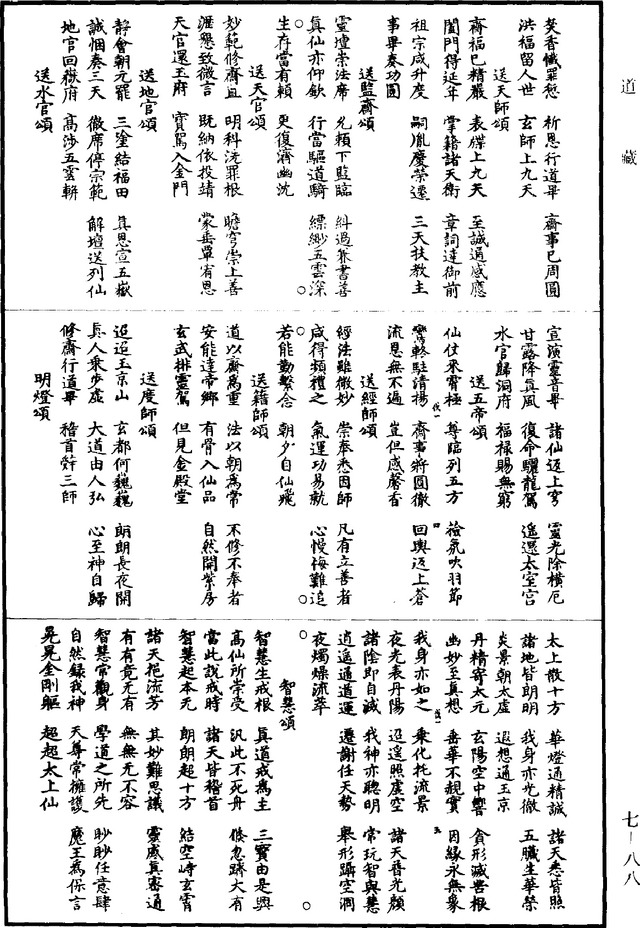 道藏
焚香懺罪愆　祈恩行道畢　齋事已周圓
洪福留人世　玄師上九天
送天師頌
齋福已精嚴　表牒上九天　至誠通感應
闔門得延年　掌籍諸天衛　章詞達御前
祖宗咸升度　嗣胤慶榮遷　三天扶教主
事畢奏功圓
送監齋頌
靈壇崇法席　允賴下監臨　糾過兼書善
真仙亦仰欽　行當驅道騎　縹緲五雲深
生存當有賴　更復濟幽沈　○
送天官頌
妙範修齋直　明科洗罪根　瞻穹崇上善
瀝懇致微言　既納依投靖　蒙垂覃宥恩
天官還玉府　寶駕入金門
送地官頌
靜會朝元罷　三塗結福田　真恩宣五嶽
誠悃奏三天　徹席停宗範　解壇送列仙
地官回嶽府　高涉五雲軿
送水官頌
宣演靈音畢　諸仙返上穹　靈光除橫厄
甘露降真風　復命驅龍駕　遙還太室宮
水官歸洞府　福祿賜無窮
送五帝頌
仙位來霄極　尊臨列五方　檢氛吹羽節
鸞軫駐清揚　齋事將圓徹　回輿返上蒼
流恩無不遍　豈但感馨香
送經師頌
經法雖微妙　崇奉悉因師　凡有立善者
咸得頻禮之　氣運功易就　心慢悔難追
○若能勤繫念　朝夕自仙飛　○
送籍師頌
道以齋為重　法以朝為常　不修不奉者
安能達帝鄉　有骨入仙品　自然開紫房
玄武排靈駕　但見金殿堂
送度師頌
迢迢玉京山　玄都何巍巍　朗朗長夜開
真人乘步虛　大道由人弘　心至神自歸
修齋行道畢　稽首辝三師
明燈頌
太上散十方　華燈通精誠　諸天悉皆照
諸地皆朗明　我身亦光徹　五臟生華榮
炎景朝太虛　遐想通玉京
丹精寄太元　玄陽空中響　貪形滅苦根
幽妙至真想　垂華不覩實　因緣永無象
我身亦如之　乘化托流景
夜光表丹陽　迢遙照虛空　諸天普光顏
諸陰即自滅　我神亦聰明　常玩智與慧
逍遙通道運　遷謝任天勢　舉形躡空洞
夜燭燥流萃
○智慧頌　○
智慧生戒根　真道戒為主　三寶由是興
高仙所常受　汎此不死舟　倏忽躋大有
當此說戒時　諸天皆稽首
智慧起本无　朗朗超十方　結空峙玄霄
諸天挹流芳　其妙難思議　靈感真實通
有有竟无有　無無无不容
智慧常觀身　學道之所先　眇眇任意肆
自然錄我神　天尊常擁護　魔王為保言
晃晃金剛軀　超超太上仙
七-八八